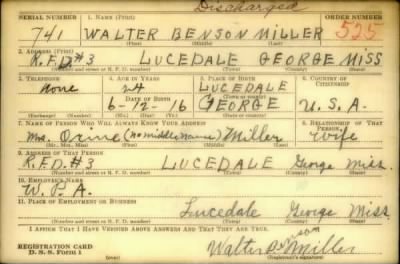 Discharged
SERIAL NUMBER 1. NAME (Print) ORDER NUMBER
741 WALTER BENSON MILLER 525
(First) (Middle) (Last)
2. ADDRESS (Print)
R.F.D.#3 LUCEDALE GEORGE MISS
(Number and street or R. F. D. number) (Town) (County) (State)
3. TELEPHONE 4. AGE IN YEARS 5. PLACE OF BIRTH 6. COUNTRY OF CITIZENSHIP
None 24 LUCEDALE
DATE OF BIRTH
6-12-16 GEORGE U.S.A.
7. NAME OF PERSON WHO WILL ALWAYS KNOW YOUR ADDRESS 8. RELATIONSHIP OF THAT PERSON
Mrs. Orine (no middle name) Miller wife
(Mr., Mrs., Miss) (First) (Middle) (Last)
9. ADDRESS OF THAT PERSON
R.F.D.#3 LUCEDALE George Miss.
(Number and street or R. F. D. number) (Town) (County) (State)
10. EMPLOYER'S NAME
W.P.A.
11. PLACE OF EMPLOYMENT OR BUSINESS
Lucedale George Miss.
(Number and street or R. F. D. number) (Town) (County) (State)
I AFFIRM THAT I HAVE VERIFIED ABOVE ANSWERS AND THAT THEY ARE TRUE.
REGISTRATION CARD
D. S. S. Form 1
(over)
Walter Benson Miller
(Registrant's signature)